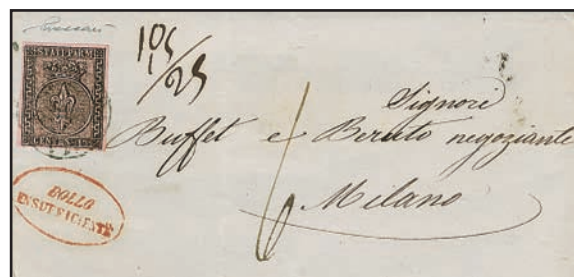 STATI PARM.
CENTES. 15
10
15/25
Signori
Buffet e Beruto negoziante
6
Milano
BOLLO
INSUFFICIENTE